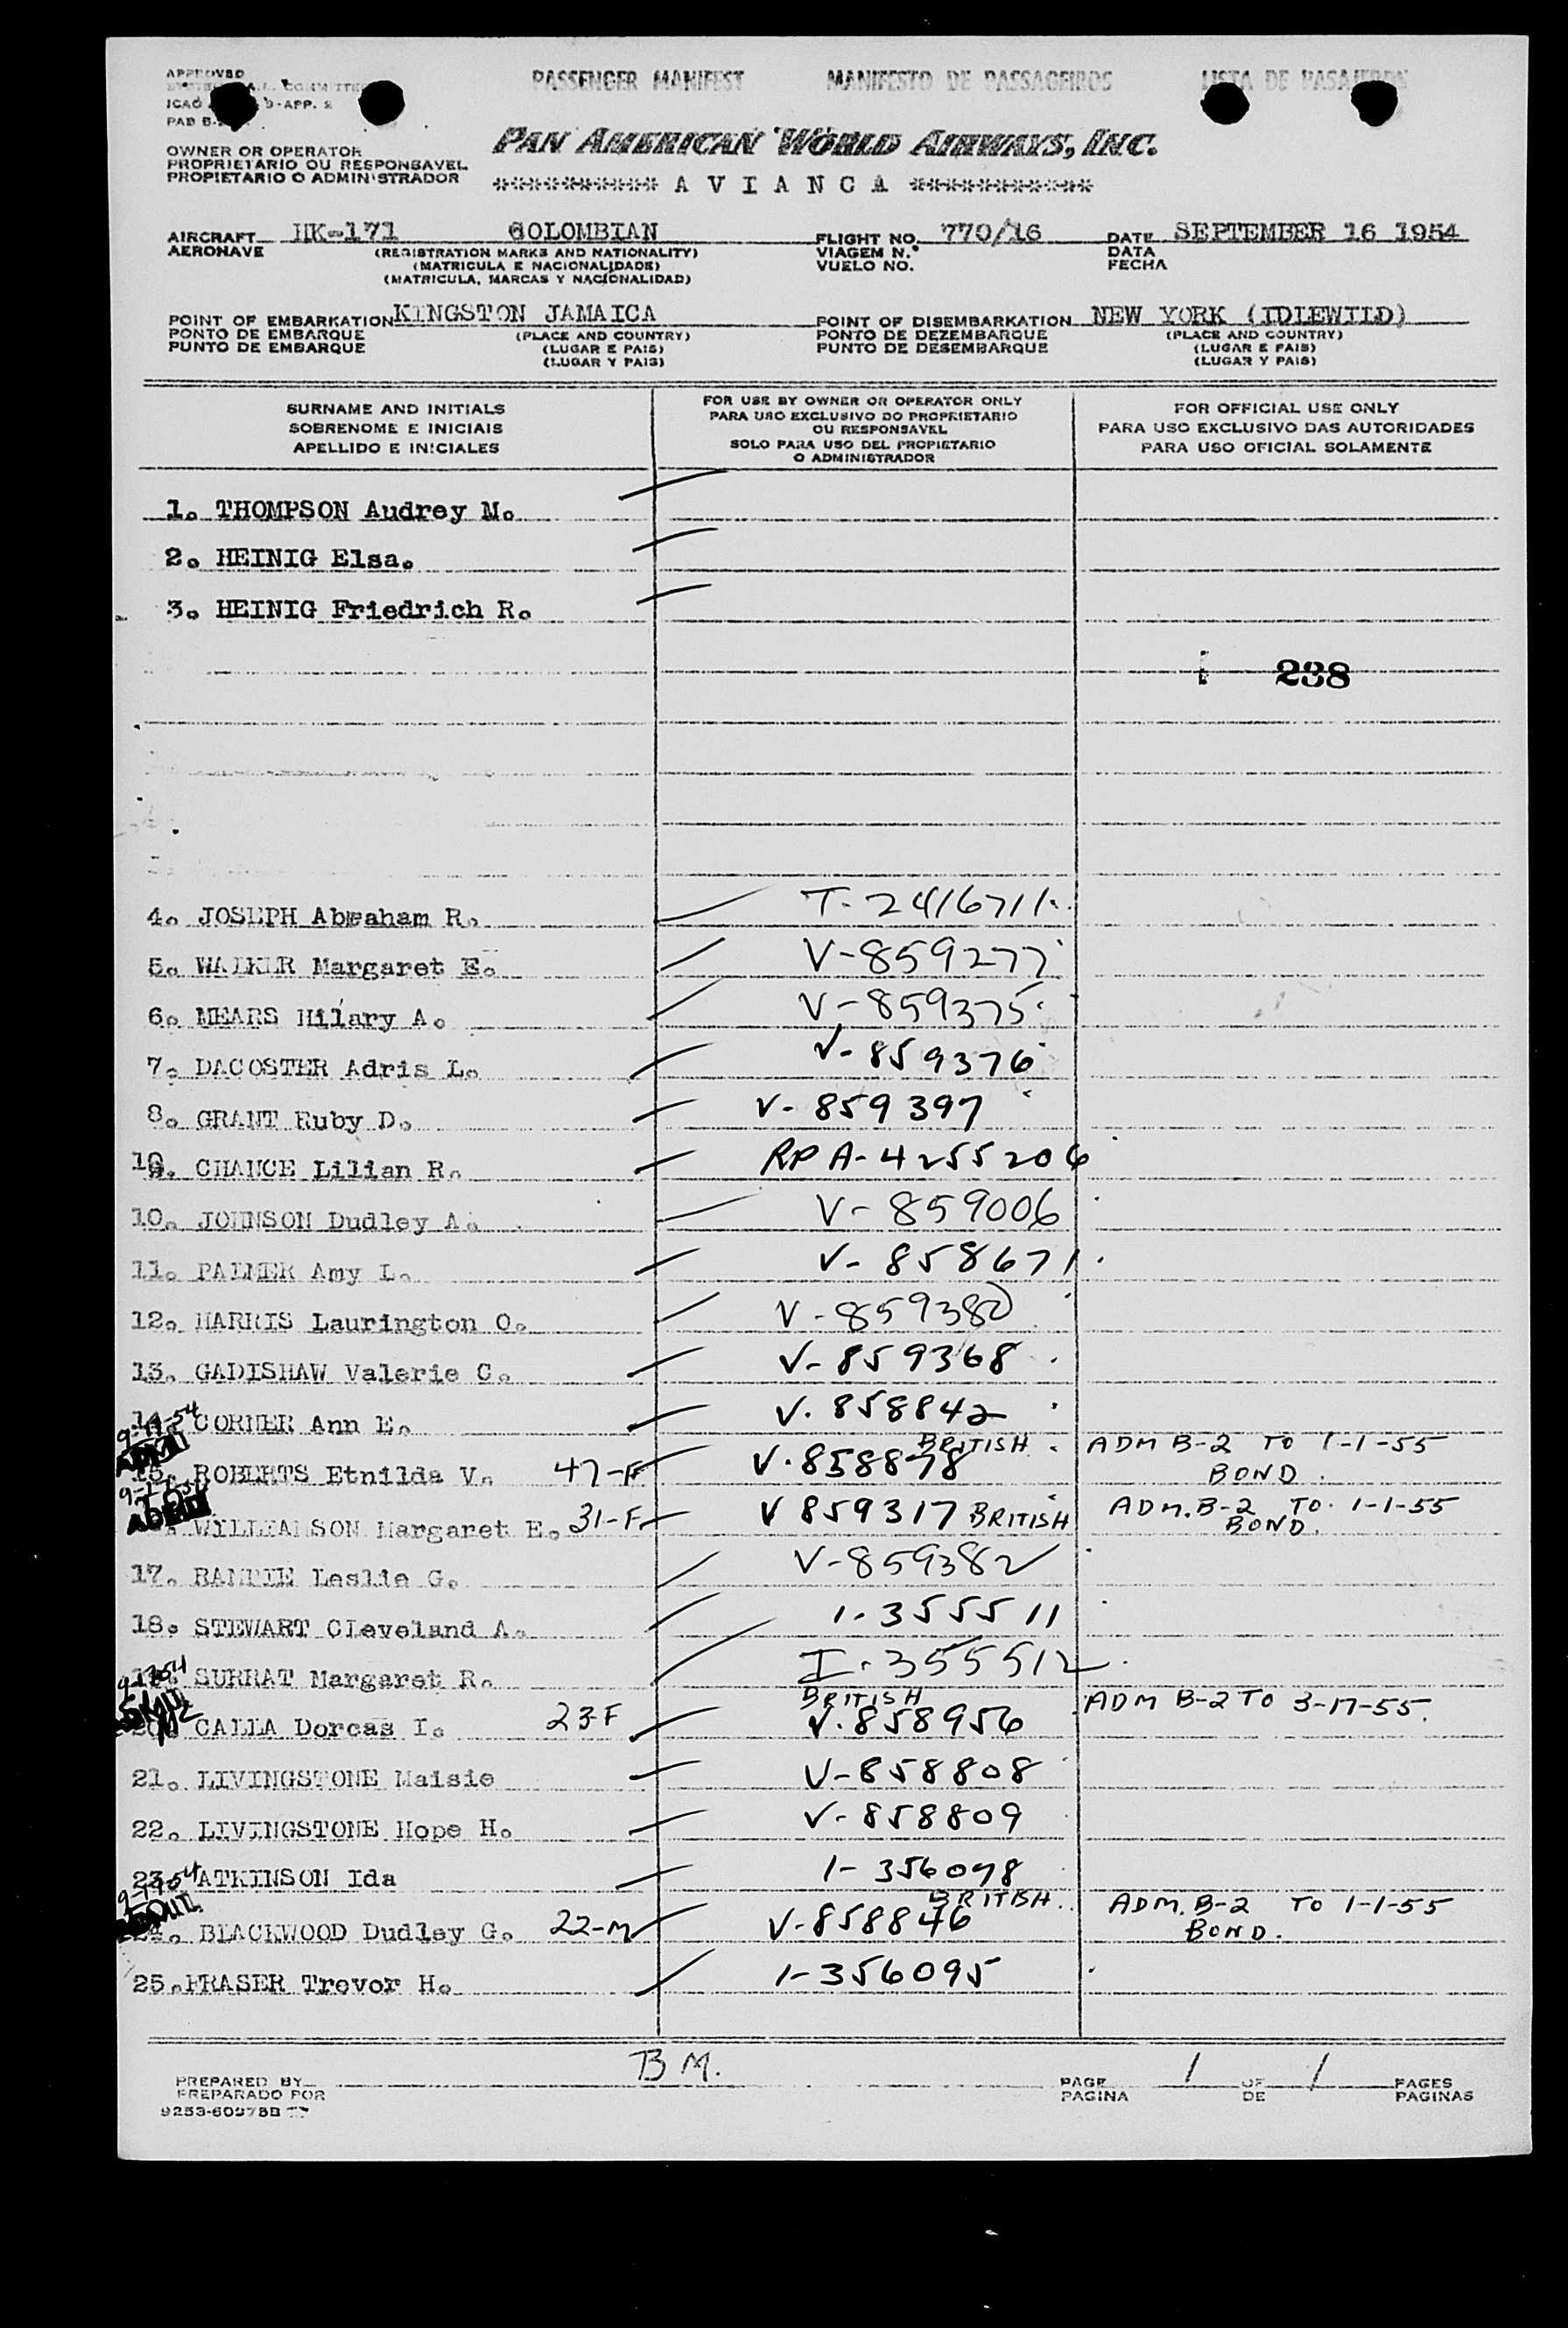 APPROVED
ICAO 9-APP. 2
PAB B-
PASSENGER MANIFEST MANIFESTO DE PASSAGEIROS LISTA DE PASAJEROS
OWNER OR OPERATOR
PROPRIETARIO OU RESPONSAVEL
PROPIETARIO O ADMINISTRADOR
PAN AMERICAN WORLD AIRWAYS, INC.
*********** A V I A N C A ************
AIRCRAFT HK-171 COLOMBIAN FLIGHT NO. 770/16 DATE SEPTEMBER 16 1954
AERONAVE (REGISTRATION MARKS AND NATIONALITY) VIAGEM N.° DATA
(MATRICULA E NACIONALIDADE) VUELO NO. FECHA
(MATRICULA, MARCAS Y NACIONALIDAD)
POINT OF EMBARKATION KINGSTON JAMAICA POINT OF DISEMBARKATION NEW YORK (IDLEWILD)
PONTO DE EMBARQUE (PLACE AND COUNTRY) PONTO DE DEZEMBARQUE (PLACE AND COUNTRY)
PUNTO DE EMBARQUE (LUGAR E PAIS) PUNTO DE DESEMBARQUE (LUGAR E PAIS)
(LUGAR Y PAIS) (LUGAR Y PAIS)
SURNAME AND INITIALS
SOBRENOME E INICIAIS
APELLIDO E INICIALES
FOR USE BY OWNER OR OPERATOR ONLY
PARA USO EXCLUSIVO DO PROPRIETARIO
OU RESPONSAVEL
SOLO PARA USO DEL PROPIETARIO
O ADMINISTRADOR
FOR OFFICIAL USE ONLY
PARA USO EXCLUSIVO DAS AUTORIDADES
PARA USO OFICIAL SOLAMENTE
1. THOMPSON Audrey M.
2. HEINIG Elsa.
3. HEINIG Friedrich R.
238
4. JOSEPH Abraham R. T-2416711
5. WALKER Margaret E. V-859277
6. MEARS Hilary A. V-859375
7. DACOSTER Adris L. V-859376
8. GRANT Ruby D. V-859397
CHANCE Lilian R. RP A-4255206
10. JOHNSON Dudley A. V-859006
11. PALMER Amy L. V-858671
12. HARRIS Laurington O. V-859380
13. GADISHAW Valerie C. V-859368
CORNER Ann E. V.858842
9-17-54
15. ROBERTS Etnilda V. 47-F V.858878 BRITISH ADM B-2 TO 1-1-55
BOND.
WILLIAMSON Margaret E. 31-F V 859317 BRITISH ADM. B-2 TO 1-1-55
BOND.
17. Leslie G. V-859382
18. STEWART Cleveland A. 1-355511
SURRAT Margaret R. I-355512
9-17-54
20. CALLA Dorcas I. 23-F BRITISH V.858956 ADM B-2 TO 3-17-55.
21. LIVINGSTONE Maisie V-858808
22. LIVINGSTONE Hope H. V-858809
23. ATKINSON Ida 1-356098
9-17-54
24. BLACKWOOD Dudley G. 22-M V-858846 BRITISH. ADM. B-2 TO 1-1-55
BOND.
25. FRASER Trevor H. 1-356095
PREPARED BY B M. PAGE 1 OF 1 PAGES
PREPARADO POR PAGINA DE PAGINAS